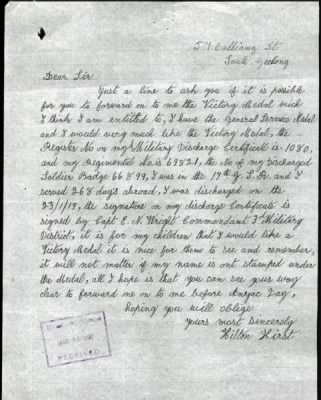 Balliang St
South Geelong
Dear Sir
Just a line to ask you if it is possible
for you to forward on to me the Victory Medal wich
I think I am entitled to, I have the General Service Medal
and I would very much like the Victory Medal, the
Register No on my Military Discharge Certificate is 1080,
and my Regimental No is 69821, the No of my Discharged
Soldier Badge 66899, I was in the 17th G.S.R. and I
served 268 days abroad, I was discharged on the
23/1/19, the segnature on my discharge Certificate is
signed by Capt E. N. Wright Commandant 3rd Military
District, it is for my children that I would like a
Victory Medal it is nice for them to see and remember,
it will not matter if my name is ont stamped under
the Medal, all I hope is that you can see your way
clear to forward me on to me before Anzac Day,
hoping you will oblige
Yours most Sincerely
Hilton Hirst
RECEIVED